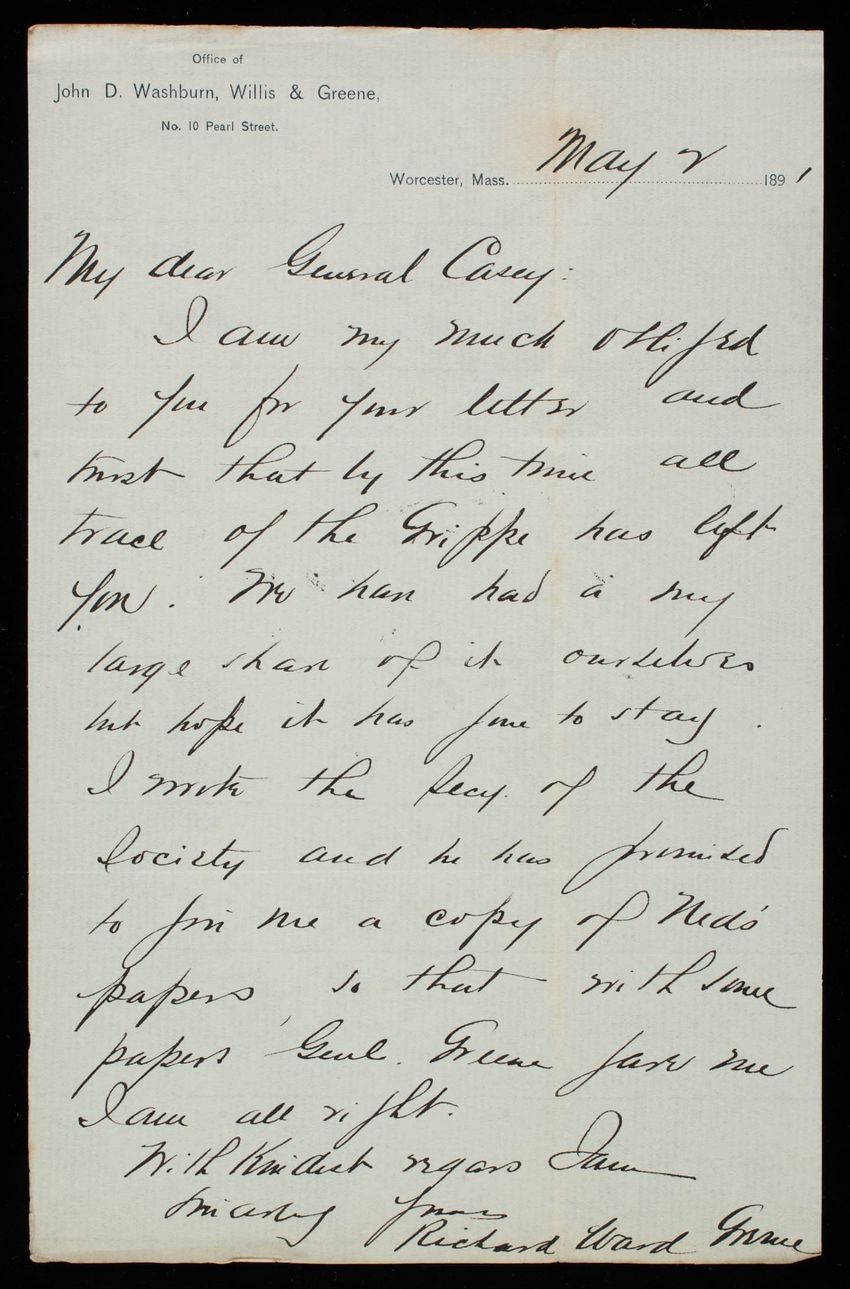 Office of
John D. Washburn, Willis & Greene,
No. 10 Pearl Street.
Worcester, Mass. May 2 1891
My dear General Casey:
I am very much obliged
to you for your letter and
trust that by this time all
trace of the Grippe has left
you. We have had a very
large share of it ourselves
but hope it has gone to stay.
I wrote the Secy. of the
Society and he has promised
to give me a copy of Ned's
papers, so that with some
papers Genl. Greene gave me
I am all right.
With Kindest regars I am
sincerely yours
Richard Ward Greene